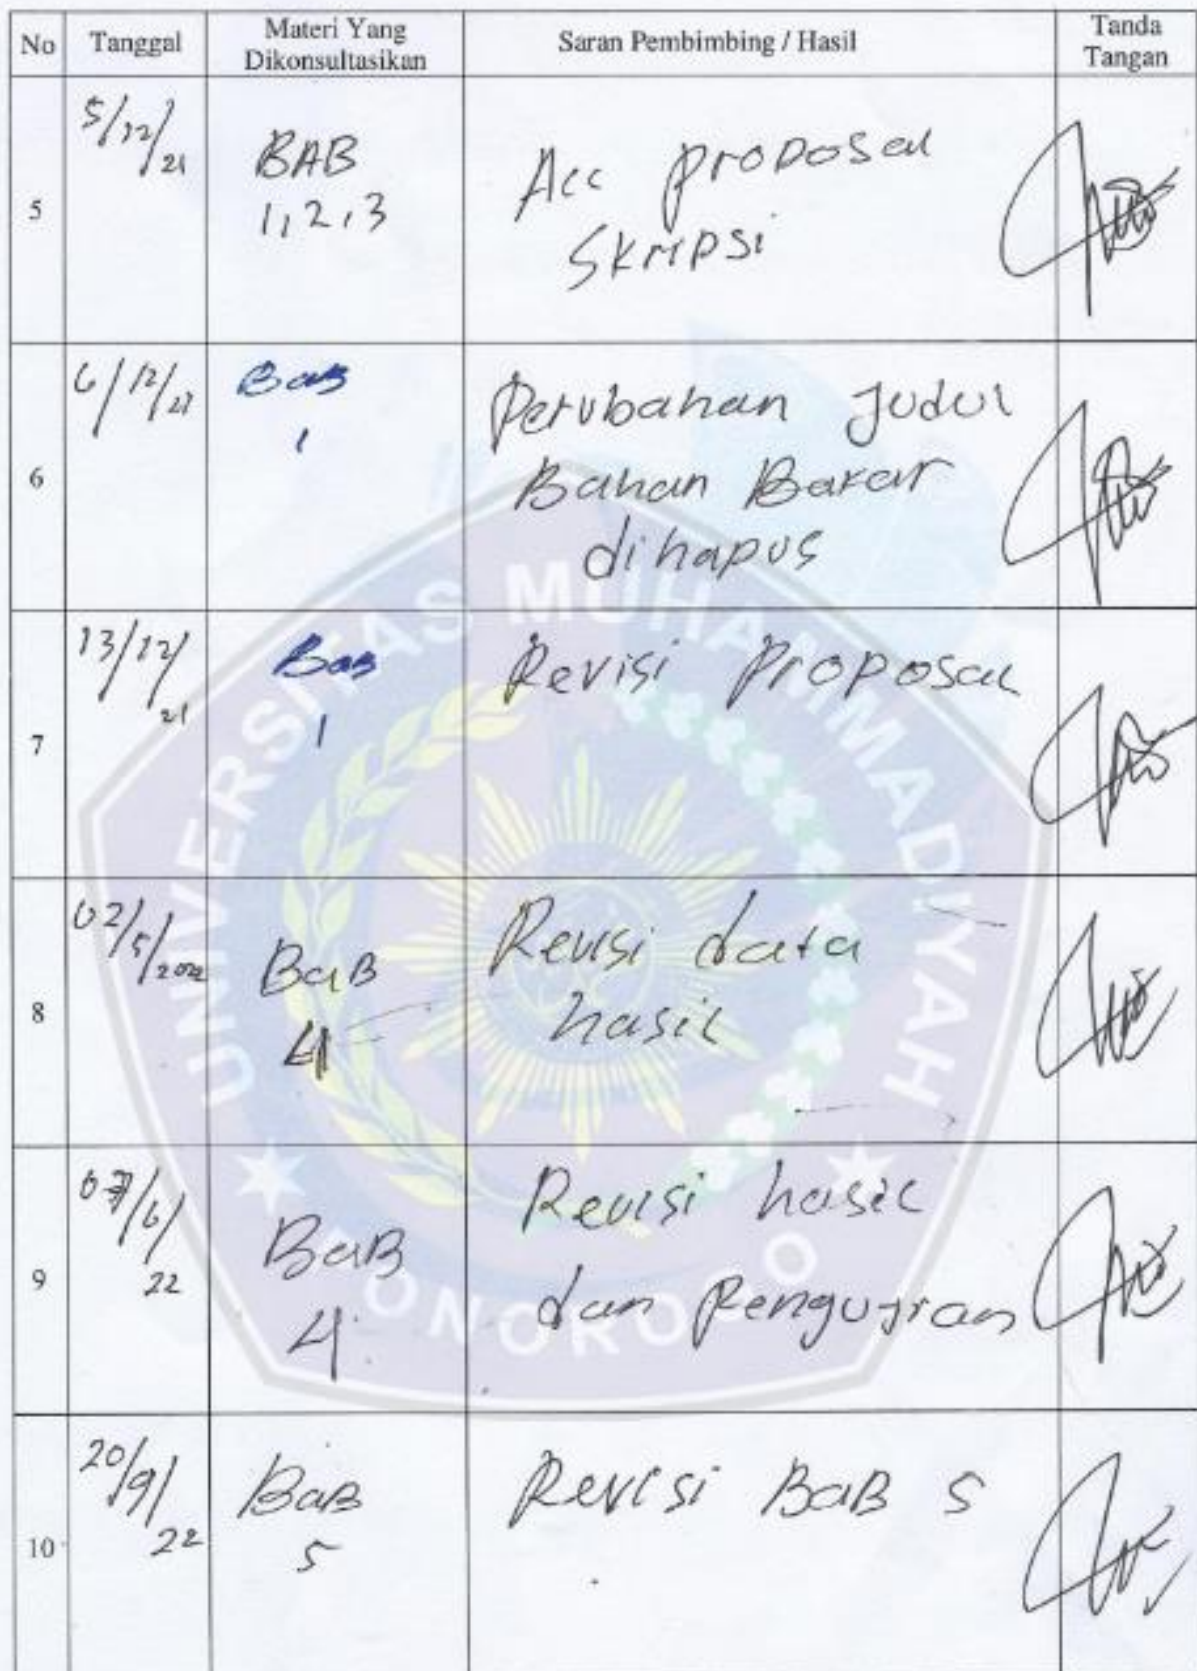 No Tanggal Materi Yang Dikonsultasikan Saran Pembimbing / Hasil Tanda Tangan
5
5/12/21
BAB
1,2,3
Acc proposal
Skripsi
6
6/12/21
Bab
1
Perubahan Judul
Bahan Bakar
dihapus
7
13/12/21
Bab
1
Revisi Proposal
8
02/5/2022
BaB
4
Revisi data
hasil
9
07/6/22
BaB
4
Revisi hasil
dan Pengujian
10
20/9/22
BaB
5
Revisi BaB 5
UNIVERSITAS MUHAMMADIYAH
PONOROGO